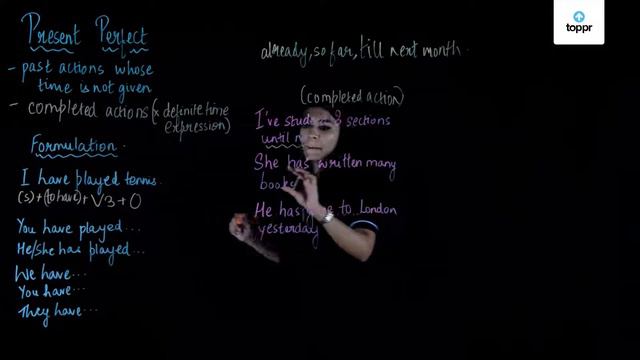 Present Perfect
- past actions whose
time is not given
- completed actions (x definite time
expression)
Formulation
I have played tennis
(S) + (to have) + V3 + O
You have played...
He/She has played...
We have...
You have...
They have...
already, so far, till next month.
(completed action)
I've 3 sections
until
She has written many
books
He has to London
yesterday
toppr